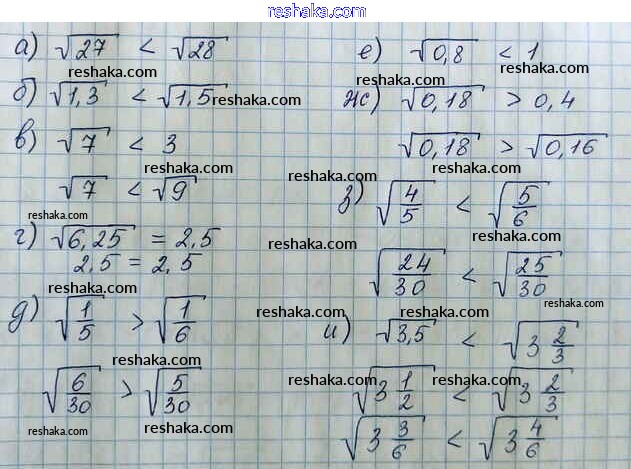 reshaka.ru
а) √27 < √28
reshaka.com
б) √1,3 < √1,5 reshaka.com
в) √7 < 3
reshaka.com
√7 < √9
reshaka.com
г) √6,25 = 2,5
2,5 = 2,5
reshaka.com
д) √(1/5) > √(1/6)
reshaka.com
√(6/30) > √(5/30)
reshaka.com
reshaka.com
е) √0,8 < 1
reshaka.com
ж) √0,18 > 0,4
reshaka.com
√0,18 > √0,16
reshaka.com
з) √(4/5) < √(5/6)
reshaka.com
reshaka.com
√(24/30) < √(25/30)
reshaka.com
reshaka.com
и) √3,5 < √(3 2/3)
reshaka.com
√(3 1/2) < √(3 2/3)
reshaka.com
reshaka.com
√(3 3/6) < √(3 4/6)
reshaka.com